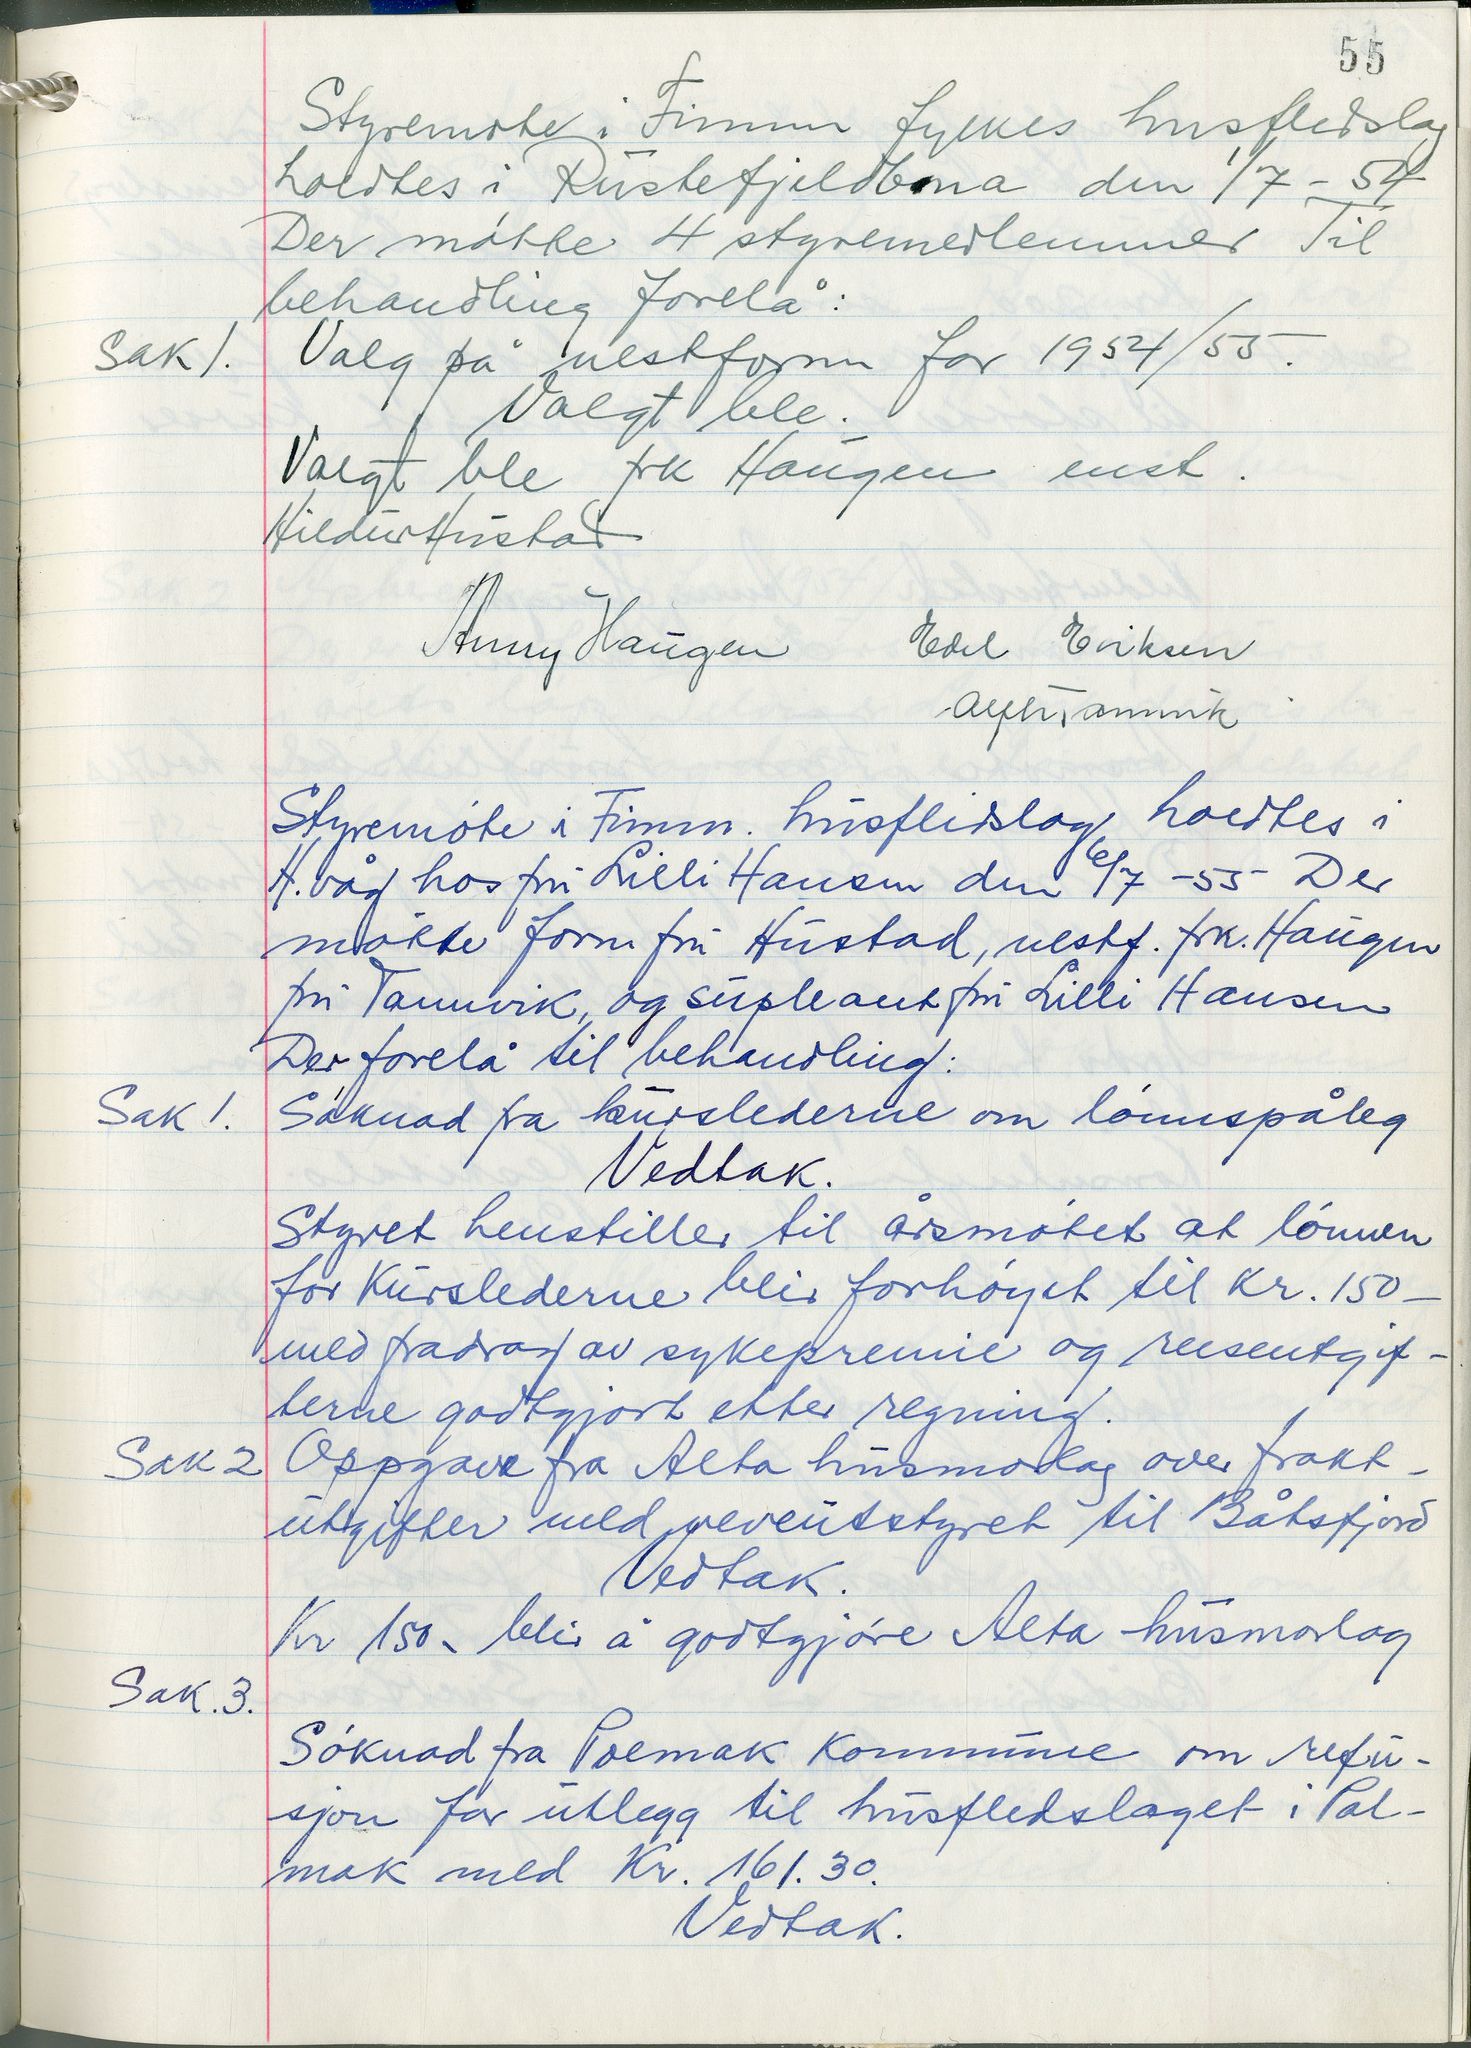 55
Styremøte i Finnm fylkes husflidslag
holdtes i Rustefjeldbma den 1/7 - 54
Der møtte 4 styremedlemmer Til
behandling forelå:
Sak 1. Valg på nestform for 1954/55.
Valgt ble.
Valgt ble frk Haugen enst.
Hildur Hustad
Anny Haugen Edel Eriksen
Alfh. Tannvik
Styremøte i Finnm. husflidslag holdtes i
H.våg hos fru Lilli Hansen den 6/7 -55 Der
møtte form fru Hustad, nestf. frk. Haugen
fru Tannvik, og supleant fru Lilli Hansen
Der forelå til behandling:
Sak 1. Søknad fra kurslederne om lønnspåleg
Vedtak.
Styret henstiller til årsmøtet at lønnen
for Kurslederne blir forhøyet til Kr. 150 -
med fradrag av sykepremie og reiseutgif-
terne godtgjort etter regning.
Sak 2 Oppgave fra Alta husmorlag over frakt-
utgifter med veveutstyret til Båtsfjord
Vedtak.
Kr 150 - blir å godtgjøre Alta husmorlag
Sak. 3.
Søknad fra Polmak Kommune om refu-
sjon for utlegg til husfledslaget i Pol-
mak med Kr. 161.30.
Vedtak.